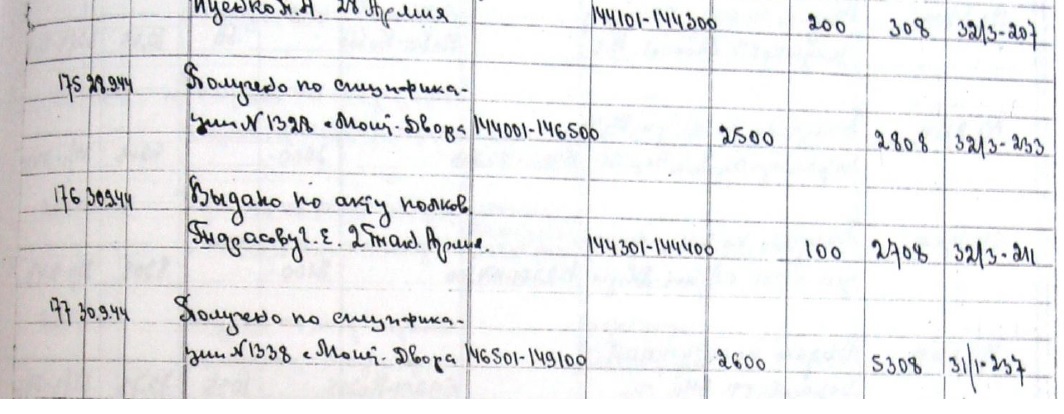 28 Армия 144101-144300 200 308 32/3-207
175 28.9.44 Получено по специфика-
ции №1328 с Монт. Двора 144001-146500 2500 2808 32/3-233
176 30.9.44 Выдано по акту полков.
Г.Е. 2 Танк. Армия. 144301-144400 100 2708 32/3-211
177 30.9.44 Получено по специфика-
ции №1338 с Монт. Двора 146501-149100 2600 5308 31/1-237